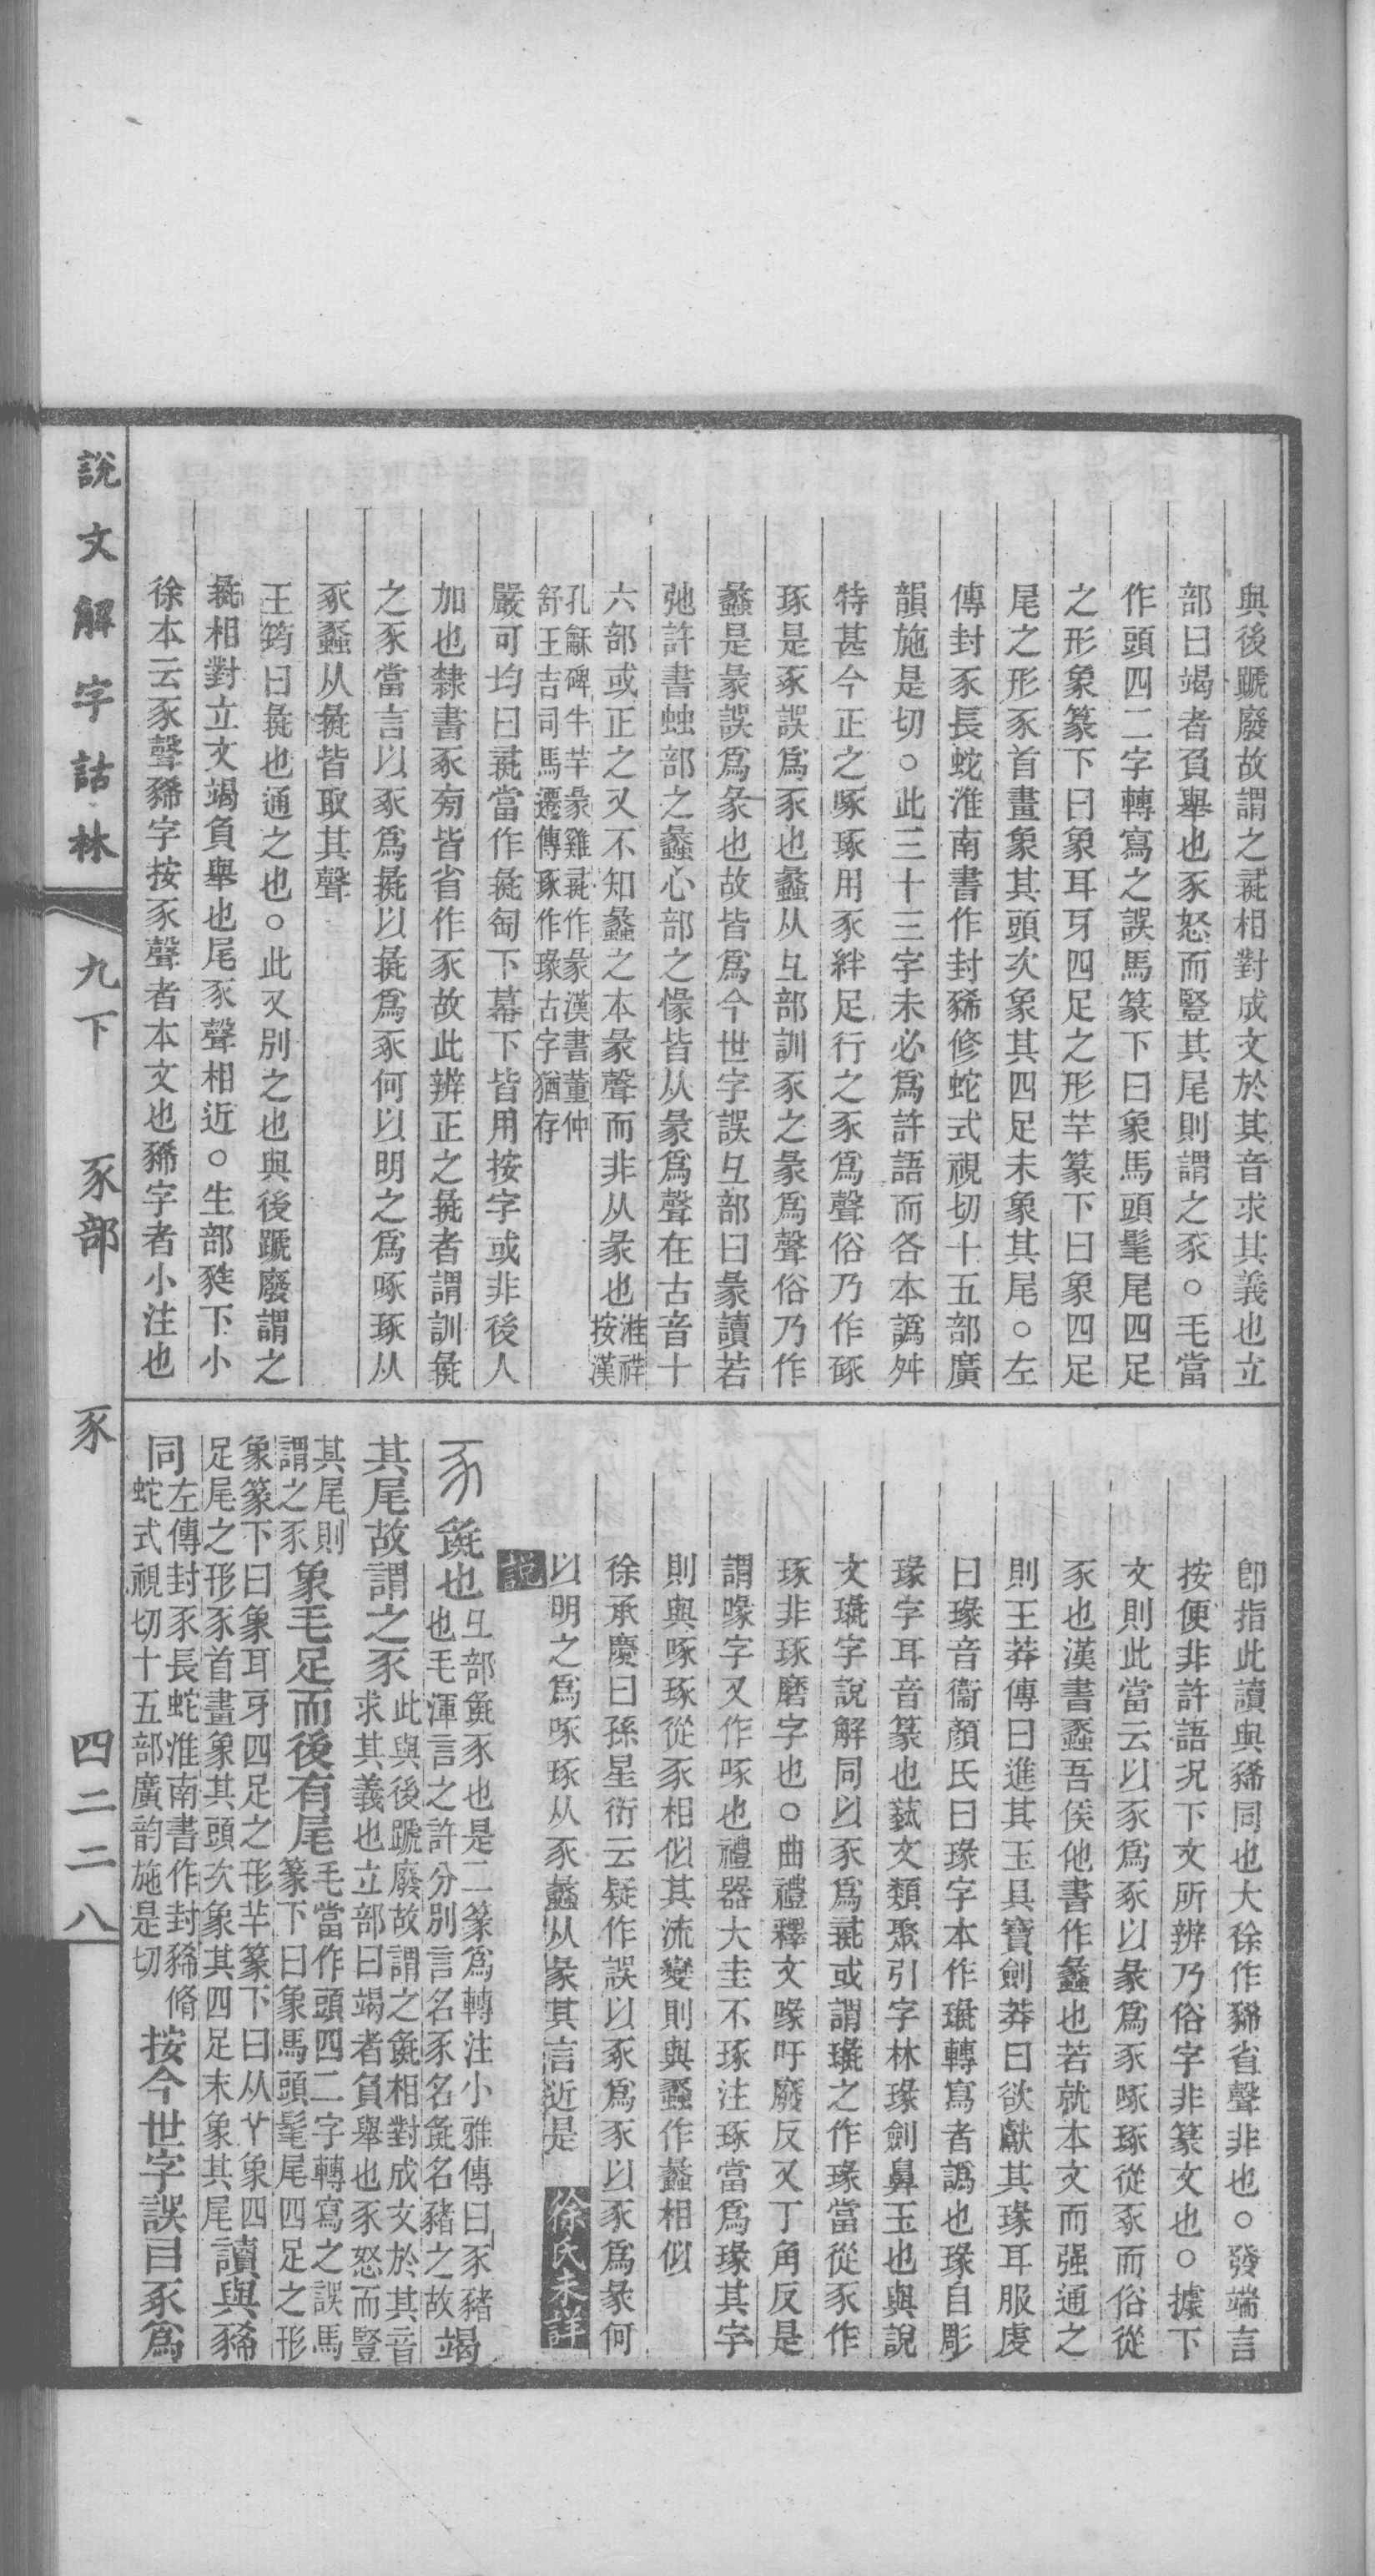 與後蹏廢故謂之彘相對成文於其音求其義也立
部曰竭者負舉也豕怒而豎其尾則謂之豕○毛當
作頭四二字轉寫之誤馬篆下曰象馬頭髦尾四足
之形象篆下曰象耳牙四足之形𦍌篆下曰象四足
尾之形豕首畫象其頭次象其四足末象其尾○左
傳封豕長蛇淮南書作封豨修蛇式視切十五部廣
韻施是切○此三十三字未必爲許語而各本譌舛
特甚今正之啄琢用豖絆足行之豖爲聲俗乃作啄
琢是豖誤爲豕也蠡从彑部訓豕之彖爲聲俗乃作
蠡是彖誤爲彖也故皆爲今世字誤彑部曰彖讀若
弛許書䖵部之蠡心部之㥟皆从彖爲聲在古音十
六部或正之又不知蠡之本彖聲而非从彖也淮祥
按漢
孔龢碑牛羊彖雞彘作彖漢書董仲
舒王吉司馬遷傳琢作瑑古字猶存
嚴可均曰彘當作㣇匋下幕下皆用按字或非後人
加也隸書豕旁皆省作豕故此辨正之㣇者謂訓㣇
之豕當言以豕爲㣇以㣇爲豕何以明之爲啄琢从
豕蟸从㣇皆取其聲
王筠曰㣇也通之也○此又別之也與後蹏廢謂之
彘相對立文竭負舉也尾豕聲相近○生部㽔下小
徐本云豕聲豨字按豕聲者本文也豨字者小注也
卽指此讀與豨同也大徐作豨省聲非也○發端言
按便非許語況下文所辨乃俗字非篆文也○據下
文則此當云以豕爲豖以彖爲豕啄琢從豖而俗從
豕也漢書蟸吾侯他書作蠡也若就本文而强通之
則王莽傳曰進其玉具寶劍莽曰欲獻其瑑耳服虔
曰瑑音衞顏氏曰瑑字本作璏轉寫者譌也瑑自彫
瑑字耳音篆也藝文類聚引字林瑑劍鼻玉也與說
文璏字說解同以豕爲彘或謂璏之作瑑當從豕作
琢非琢磨字也○曲禮釋文喙吁廢反又丁角反是
謂喙字又作啄也禮器大圭不琢注琢當爲瑑其字
則與啄琢從豕相似其流變則與蟸作蠡相似
徐承慶曰孫星衍云疑作誤以豕爲豖以豕爲彖何
以明之爲啄琢从豖蠡从彖其言近是　徐氏未詳
說
豕　彘也彑部彘豕也是二篆爲轉注小雅傳曰豕豬
也毛渾言之許分別言名豕名彘名豬之故竭
其尾故謂之豕此與後蹏廢故謂之彘相對成文於其音
求其義也立部曰竭者負舉也豕怒而豎
其尾則
謂之豕象毛足而後有尾毛當作頭四二字轉寫之誤馬
篆下曰象馬頭髦尾四足之形
象篆下曰象耳牙四足之形羊篆下曰从丫象四
足尾之形豕首畫象其頭次象其四足末象其尾讀與豨
同左傳封豕長蛇淮南書作封豨脩
蛇式視切十五部廣韵施是切按今世字誤㠯豕爲
說文解字詁林　九下　豕部　豕　四二二八